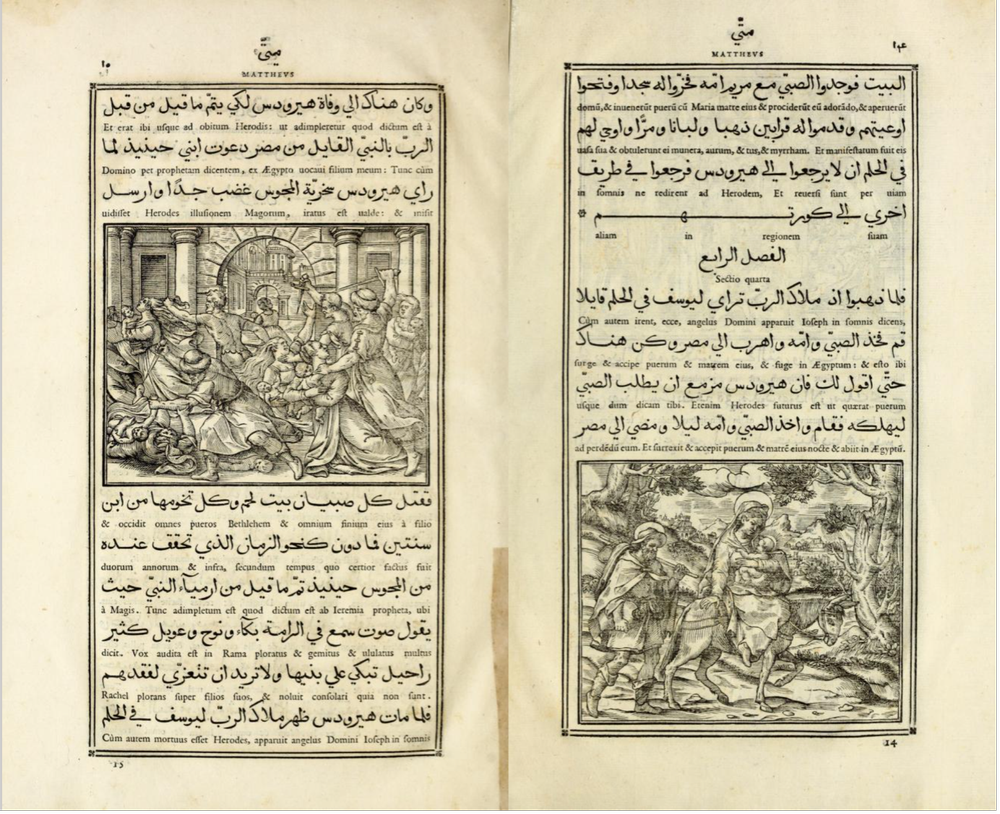 متّي
١٤
MATTHEVS
البيت فوجدوا الصبّي مع مريم امّه فخرّوا له سجدا وفتحوا
domũ, & inuenerũt puerũ cũ Maria matre eius & prociderũt eũ adorãdo, & aperuerũt
اوعيتهم وقدموا له قرابين ذهبا ولبانا ومرّا واوحي لهم
uasa sua & obtulerunt ei munera, aurum, & tus, & myrrham. Et manifestatum fuit eis
في الحلم ان لا يرجعوا الي هيرودس فرجعوا في طريق
in somnis ne redirent ad Herodem, Et reuersi sunt per uiam
اخري الي كورتهم
aliam in regionem suam
الفصل الرابع
Sectio quarta
فلما ذهبوا اذ ملاك الربّ تراي ليوسف في الحلم قايلا
Cùm autem irent, ecce, angelus Domini apparuit Ioseph in somnis dicens,
قم فخذ الصبّي وامّه واهرب الي مصر وكن هناك
surge & accipe puerum & matrem eius, & fuge in Ægyptum: & esto ibi
حتّي اقول لك فان هيرودس مزمع ان يطلب الصبّي
usque dum dicam tibi. Etenim Herodes futurus est ut quærat puerum
ليهلكه فقام واخذ الصبّي وامّه ليلا ومضي الي مصر
ad perdẽdũ eum. Et surrexit & accepit puerum & matrẽ eius nocte & abiit in Ægyptũ.
14
متّي
١٥
MATTHEVS
وكان هناك الي وفاة هيرودس لكي يتمّ ما قيل من قبل
Et erat ibi usque ad obitum Herodis: ut adimpleretur quod dictum est à
الرب بالنبي القايل من مصر دعوت ابني حينيذ لما
Domino per prophetam dicentem, ex Ægypto uocaui filium meum: Tunc cùm
راي هيرودس سخرية المجوس غضب جدّا وارسل
uidisset Herodes illusionem Magorum, iratus est ualde: & misit
فقتل كل صبيان بيت لحم وكل تخومها من ابن
& occidit omnes pueros Bethlehem & omnium finium eius à filio
سنتين فما دون كنحو الزمان الذي تحقق عنده
duorum annorum & infra, secundum tempus quo certior factus fuit
من المجوس حينيذ تمّ ما قيل من ارمياء النبّي حيث
à Magis. Tunc adimpletum est quod dictum est ab Ieremia propheta, ubi
يقول صوت سمع في الرامة بكاء ونوح وعويل كثير
dicit. Vox audita est in Rama ploratus & gemitus & ululatus multus
راحيل تبكي علي بنيها ولا تريد ان تتعزّي لفقدهم
Rachel plorans super filios suos, & noluit consolari quia non sunt.
فلما مات هيرودس ظهر ملاك الربّ ليوسف في الحلم
Cùm autem mortuus esset Herodes, apparuit angelus Domini Ioseph in somnis
15